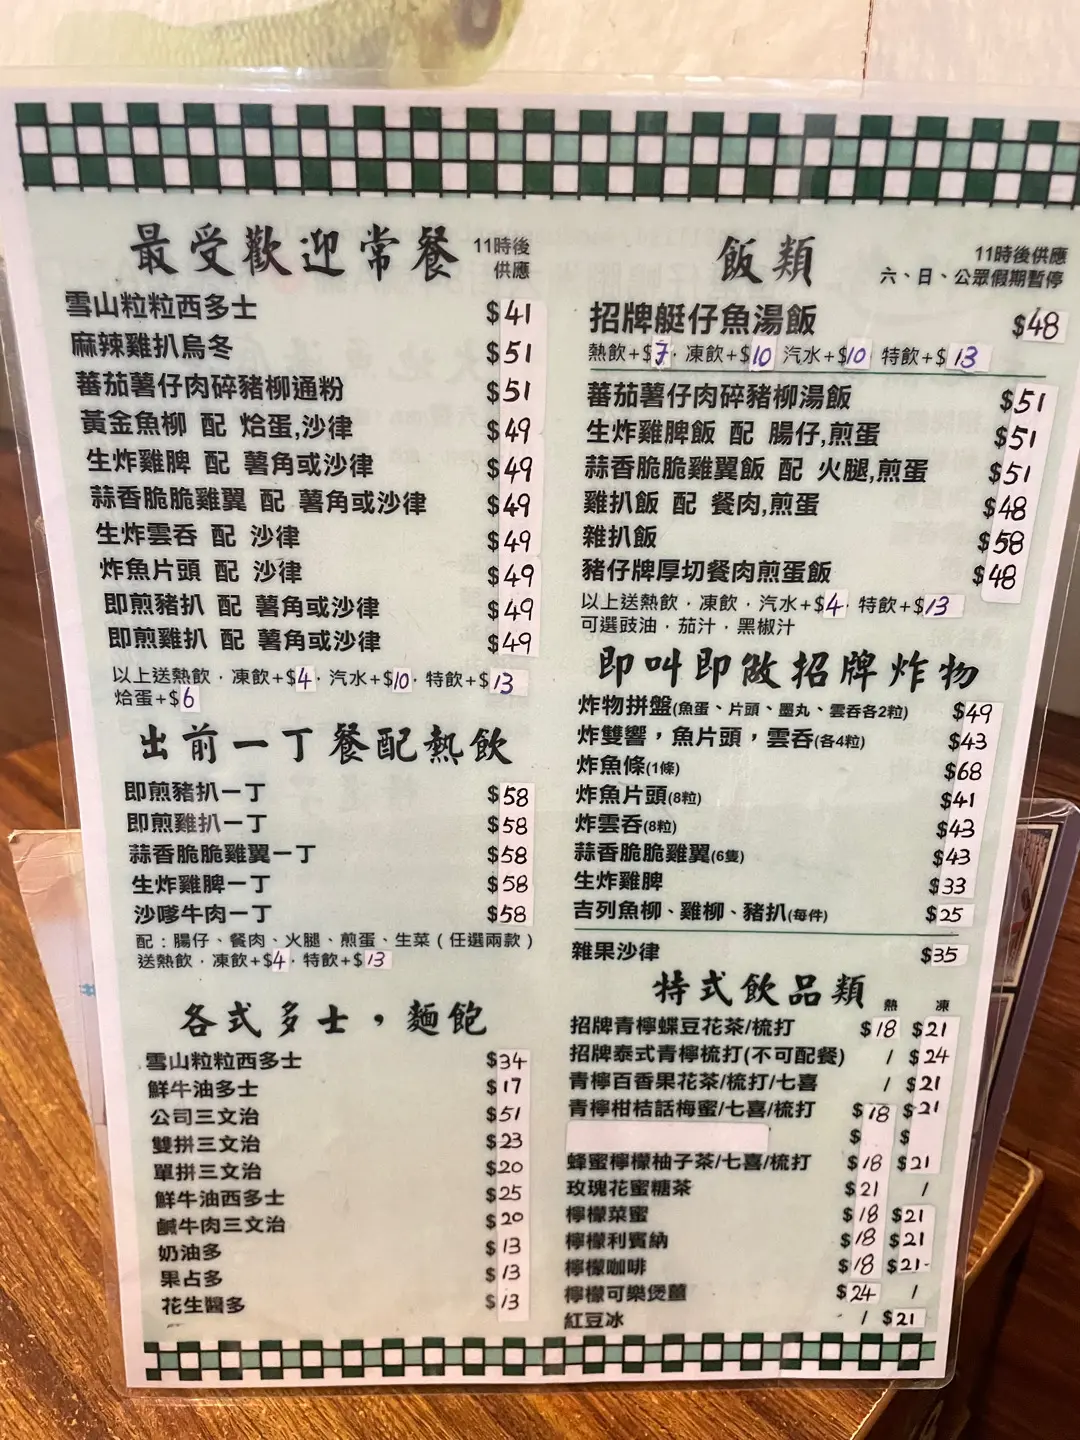 最受歡迎常餐 11時後供應
雪山粒粒西多士 $41
麻辣雞扒烏冬 $51
蕃茄薯仔肉碎豬柳通粉 $51
黃金魚柳 配 烚蛋,沙律 $49
生炸雞脾 配 薯角或沙律 $49
蒜香脆脆雞翼 配 薯角或沙律 $49
生炸雲吞 配 沙律 $49
炸魚片頭 配 沙律 $49
即煎豬扒 配 薯角或沙律 $49
即煎雞扒 配 薯角或沙律 $49
以上送熱飲．凍飲+$4．汽水+$10．特飲+$13
烚蛋+$6
出前一丁餐配熱飲
即煎豬扒一丁 $58
即煎雞扒一丁 $58
蒜香脆脆雞翼一丁 $58
生炸雞脾一丁 $58
沙嗲牛肉一丁 $58
配：腸仔、餐肉、火腿、煎蛋、生菜（任選兩款）
送熱飲．凍飲+$4．特飲+$13
各式多士，麵飽
雪山粒粒西多士 $34
鮮牛油多士 $17
公司三文治 $51
雙拼三文治 $23
單拼三文治 $20
鮮牛油西多士 $25
鹹牛肉三文治 $20
奶油多 $13
果占多 $13
花生醬多 $13
飯類 11時後供應
六、日、公眾假期暫停
招牌艇仔魚湯飯 $48
熱飲+$7．凍飲+$10 汽水+$10 特飲+$13
蕃茄薯仔肉碎豬柳湯飯 $51
生炸雞脾飯 配 腸仔,煎蛋 $51
蒜香脆脆雞翼飯 配 火腿,煎蛋 $51
雞扒飯 配 餐肉,煎蛋 $48
雜扒飯 $58
豬仔牌厚切餐肉煎蛋飯 $48
以上送熱飲．凍飲．汽水+$4．特飲+$13
可選豉油．茄汁．黑椒汁
即叫即做招牌炸物
炸物拼盤(魚蛋、片頭、墨丸、雲吞各2粒) $49
炸雙響，魚片頭，雲吞(各4粒) $43
炸魚條(1條) $68
炸魚片頭(8粒) $41
炸雲吞(8粒) $43
蒜香脆脆雞翼(6隻) $43
生炸雞脾 $33
吉列魚柳、雞柳、豬扒(每件) $25
雜果沙律 $35
特式飲品類 熱 凍
招牌青檸蝶豆花茶/梳打 $18 $21
招牌泰式青檸梳打(不可配餐) / $24
青檸百香果花茶/梳打/七喜 / $21
青檸柑桔話梅蜜/七喜/梳打 $18 $21
$ $
蜂蜜檸檬柚子茶/七喜/梳打 $18 $21
玫瑰花蜜糖茶 $21 /
檸檬菜蜜 $18 $21
檸檬利賓納 $18 $21
檸檬咖啡 $18 $21
檸檬可樂煲薑 $24 /
紅豆冰 / $21